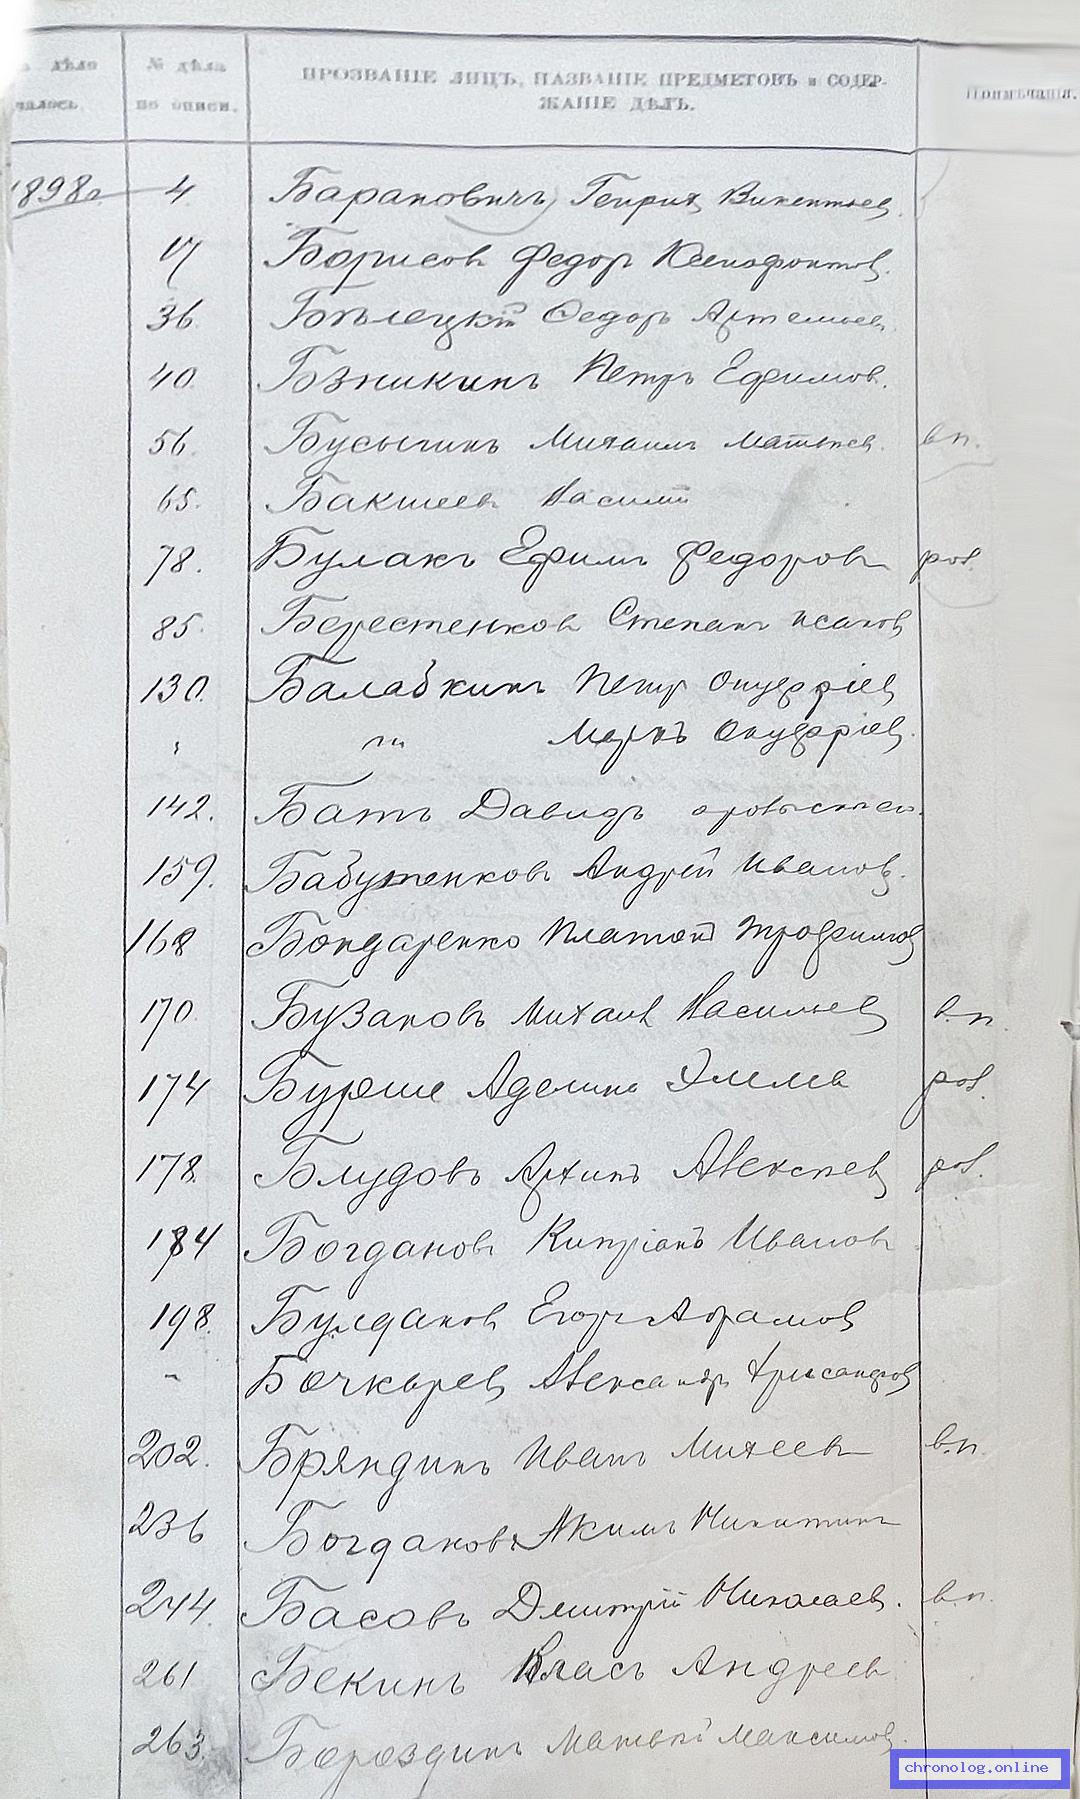 дѣло № дѣла ПРОЗВАНІЕ ЛИЦЪ, НАЗВАНІЕ ПРЕДМЕТОВЪ и СОДЕР- Примѣчанія.
чалось. по описи. ЖАНІЕ ДѢЛЪ.
1898г. 4 Барановичъ Генрих Викентьев.
17 Борисов Федор Ксенофонтов.
36. Бѣлецкій Федоръ Артемьев.
40. Бзникинъ Петръ Ефимов.
56. Бусыгинъ Михаилъ Матвѣев. вп.
65. Бакшеев Василій
78. Булакъ Ефимъ Федоров роз.
85. Берестенков Степанъ Исаков
130. Балабкинъ Петр Онуфріев
" Маркъ Онуфріев.
142. Батъ Давидъ
159. Бабутенковъ Андрей Иванов.
168 Бондаренко Платон Трофимов
170. Бузаковъ Михаил Васильев в.п.
174 Буреше Аделина Эмма роз.
178. Блудовъ Архипъ Алексѣев роз.
184 Богданов Кипріанъ Иванов
198. Булдаков Егоръ Абрамов
" Бочкарев Александръ Хрисанфов
202. Бряндинъ Иванъ Михеев в.п.
236 Богданов Акимъ Никитинъ
244. Басовъ Дмитрій Николаев. в.п.
261 Бекинъ Власъ Андреев
263. Бороздинъ Матвѣй Максимов.
chronolog.online